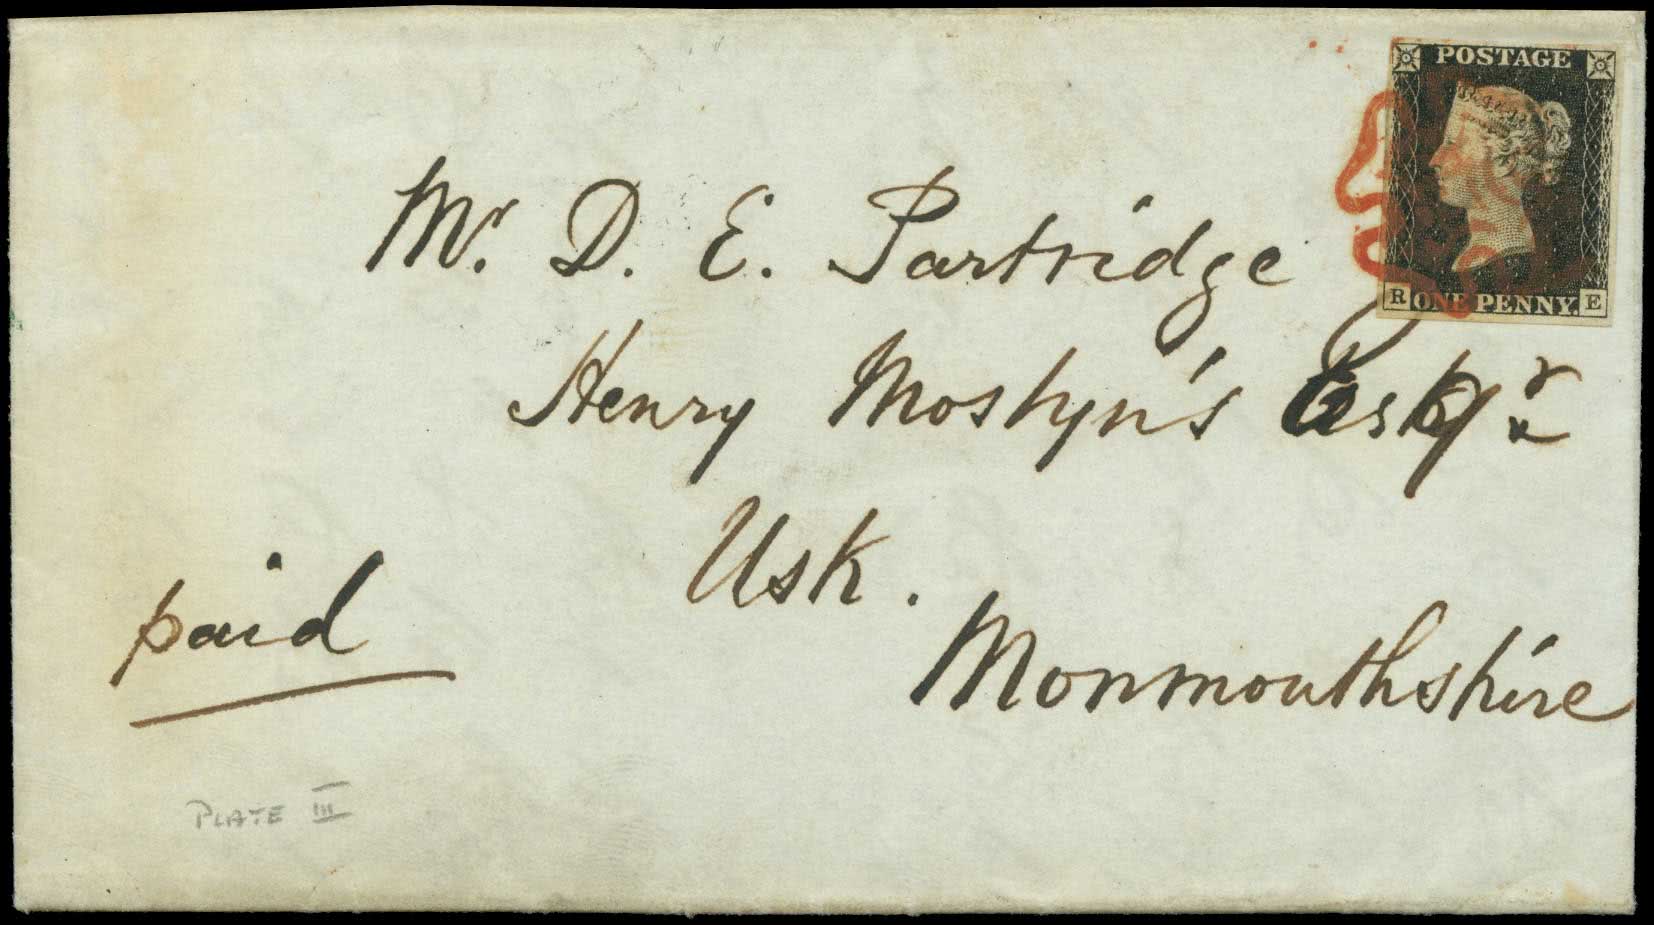 POSTAGE
R ONE PENNY. E
Mr. D. E. Partridge
Henry Mostyn's Esqr
Usk.
Monmouthshire
paid
PLATE III